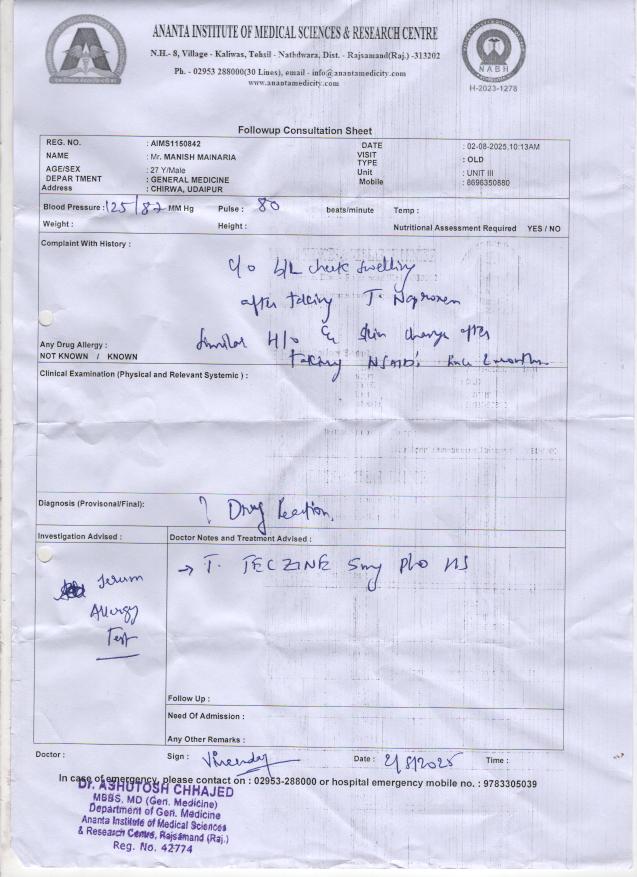 ANANTA INSTITUTE OF MEDICAL SCIENCES & RESEARCH CENTRE
N.H.- 8, Village - Kaliwas, Tehsil - Nathdwara, Dist. - Rajsamand(Raj.) -313202
Ph. - 02953 288000(30 Lines), email - info@anantamedicity.com
www.anantamedicity.com
NABH
H-2023-1278
Followup Consultation Sheet
REG. NO. : AIMS1150842 DATE : 02-08-2025,10:13AM
NAME : Mr. MANISH MAINARIA VISIT TYPE : OLD
AGE/SEX : 27 Y/Male Unit : UNIT III
DEPARTMENT : GENERAL MEDICINE Mobile : 8696350880
Address : CHIRWA, UDAIPUR
Blood Pressure : 125/82 MM Hg Pulse : 80 beats/minute Temp :
Weight : Height : Nutritional Assessment Required YES / NO
Complaint With History :
c/o b/L cheek swelling
after taking T. Naproxen
Similar H/o skin change after
taking NSAID's 2 months
Any Drug Allergy :
NOT KNOWN / KNOWN
Clinical Examination (Physical and Relevant Systemic ) :
Diagnosis (Provisonal/Final):
? Drug Reaction.
Investigation Advised : Doctor Notes and Treatment Advised :
→ T. TECZINE 5mg p/o HS
Serum
Allergy
Test
Follow Up :
Need Of Admission :
Any Other Remarks :
Doctor : Sign : Virender Date : 2/8/2025 Time :
In case of emergency, please contact on : 02953-288000 or hospital emergency mobile no. : 9783305039
Dr. ASHUTOSH CHHAJED
MBBS, MD (Gen. Medicine)
Department of Gen. Medicine
Ananta Institute of Medical Sciences
& Research Centre, Rajsamand (Raj.)
Reg. No. 42774